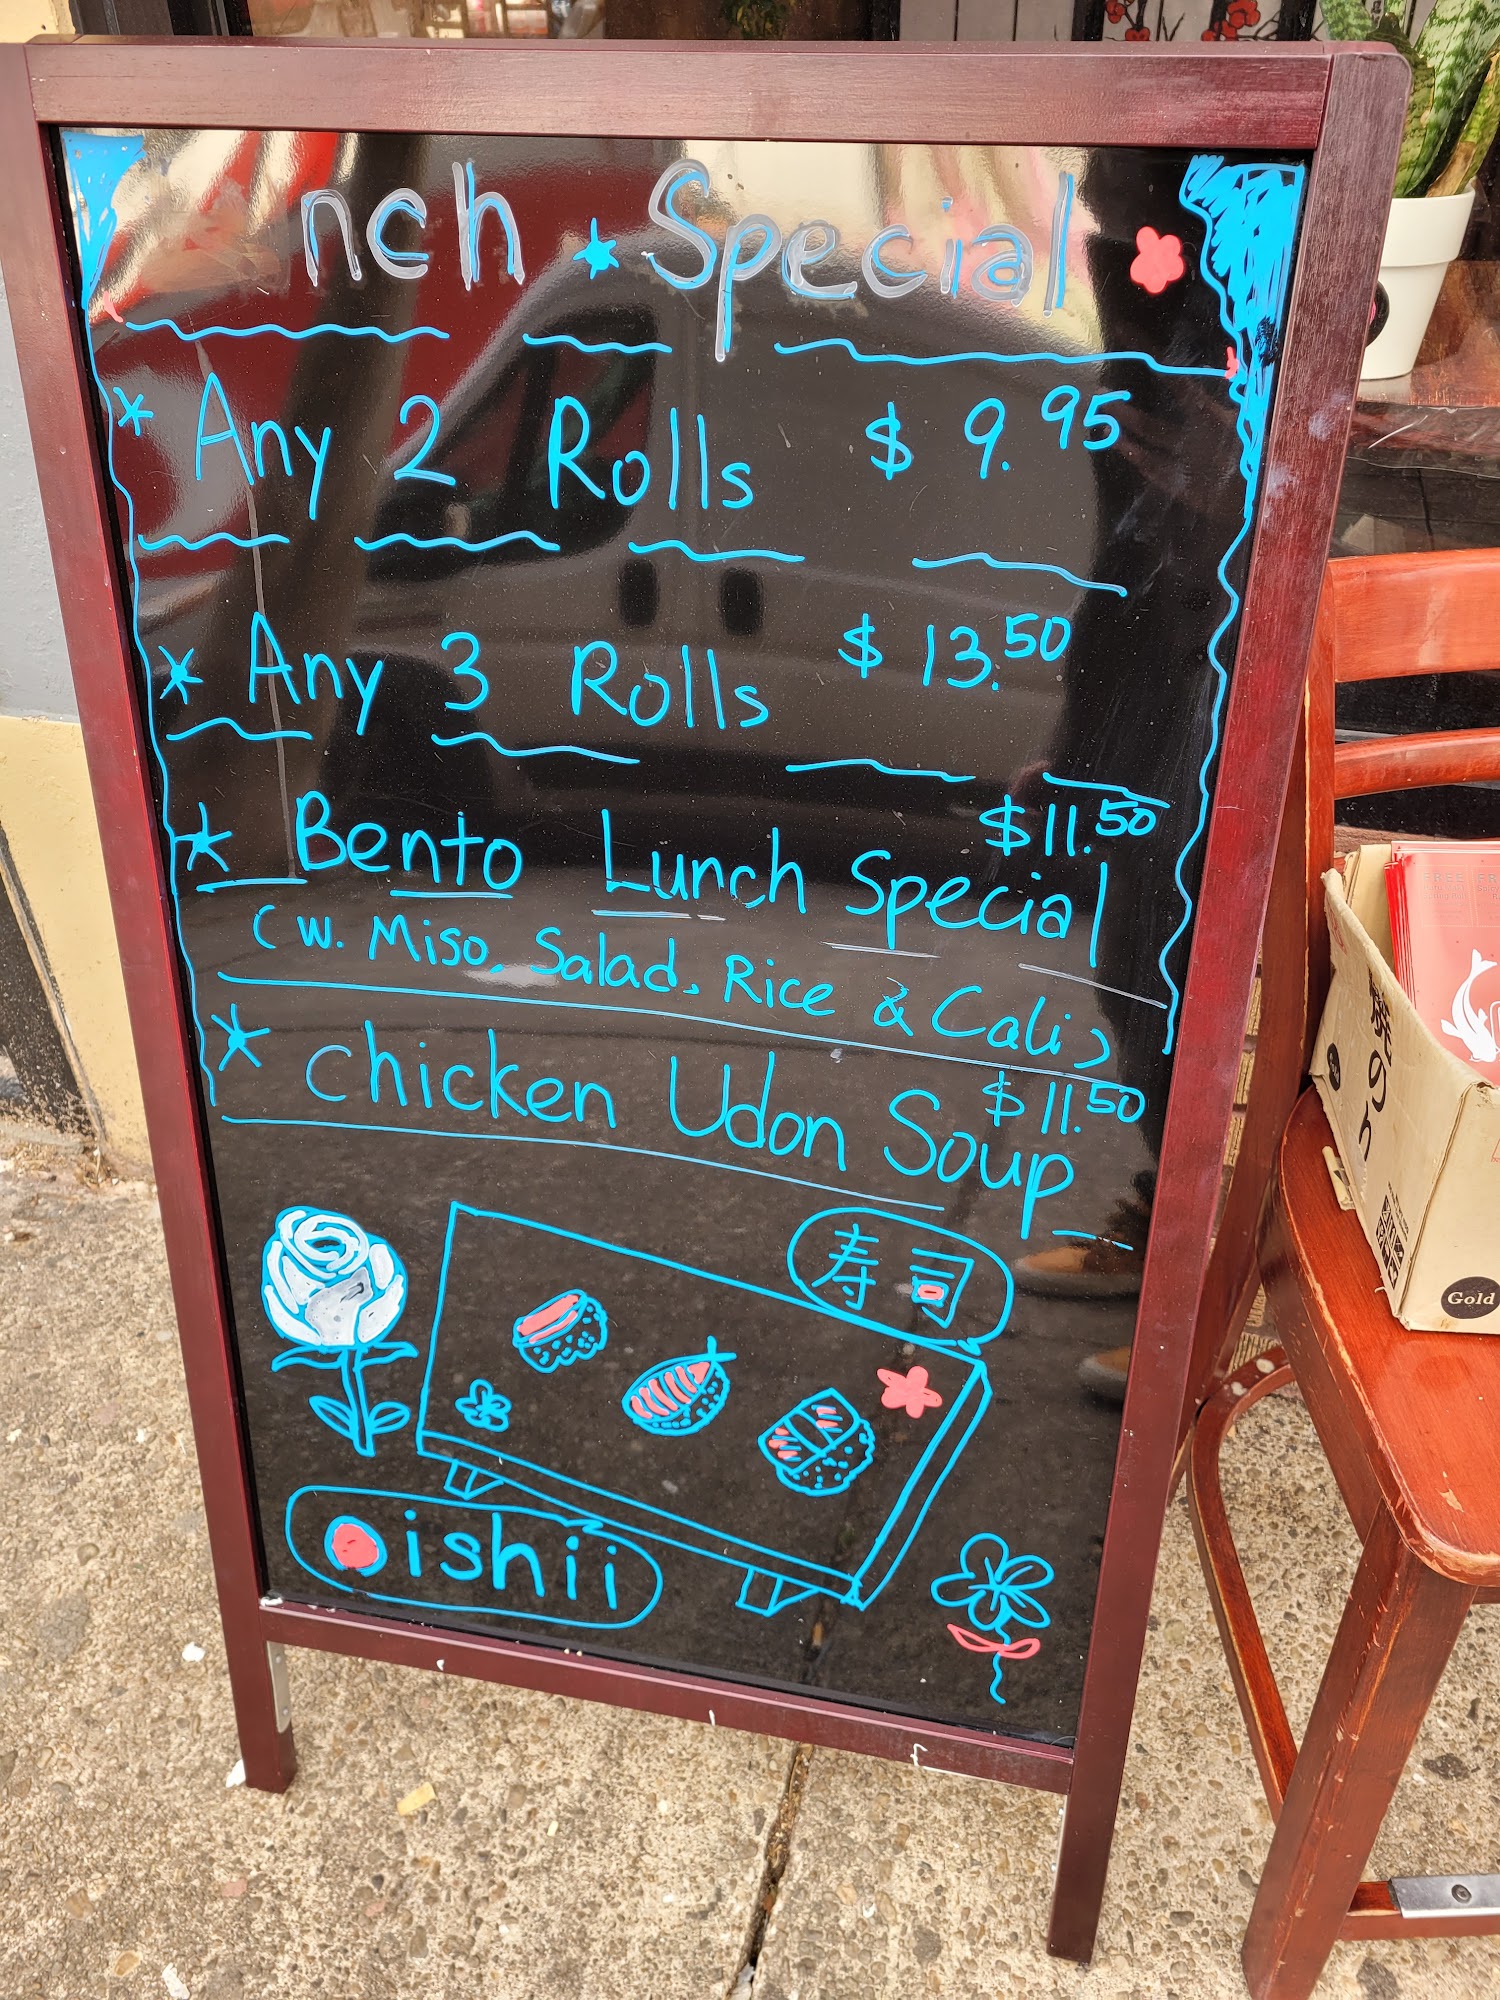 nch Special
* Any 2 Rolls $ 9.95
* Any 3 Rolls $ 13.50
* Bento Lunch Special $11.50
(w. Miso, Salad, Rice & Cali)
* Chicken Udon Soup $11.50
寿司
Oishii
FREE
Gold